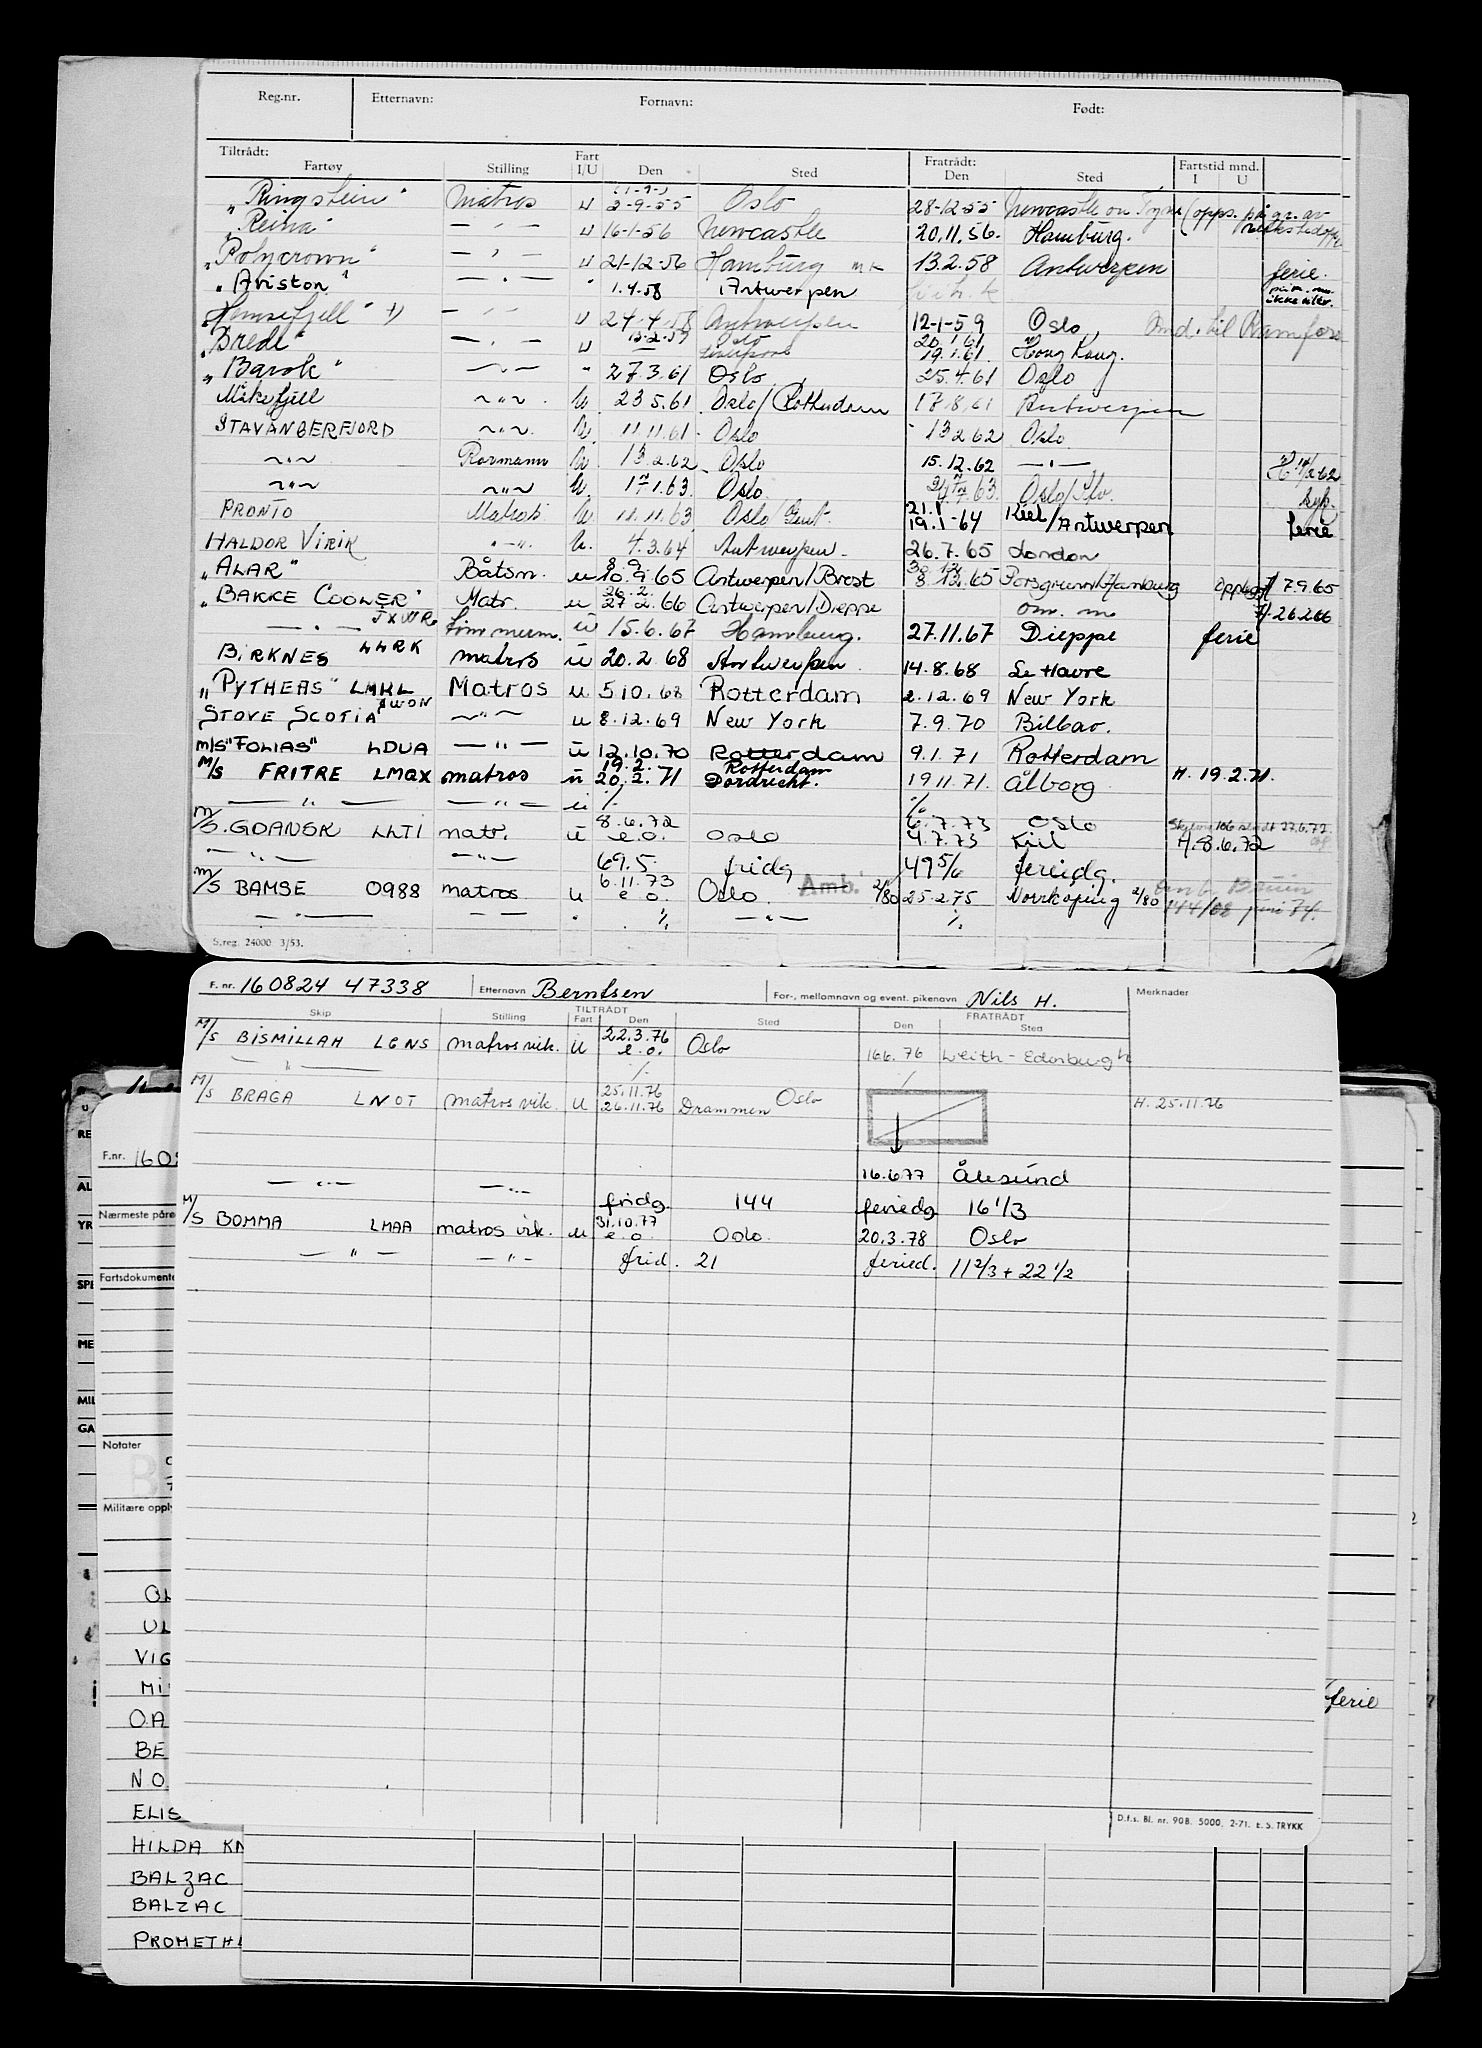 Reg.nr. Etternavn: Fornavn: Født:
Tiltrådt: Fratrådt: Fartstid mnd.
Fartøy Stilling Fart I/U Den Sted Den Sted I U
"Ringstein" Matros u 2-9-55 Oslo 28-12-55 Newcastle on Tyne (opps. på gr. av
"Reina" — " — u 16-1-56 Newcastle 20.11.56. Hamburg.
"Polycrown" — " — u 21-12-56 Hamburg 13.2.58 Antwerpen ferie.
"Ariston" — " — " 1.4.58 Antwerpen
— " — u 24.4.58 Antwerpen 12-1-59 Oslo
"Brede" — " — u 13-2-59 Oslo Liverpool 20.1.61 19.1.61. Hong Kong.
"Barok" — " — " 27.3.61 Oslo 25.4.61 Oslo
Måkefjell — " — u. 23 5.61. Oslo/Rotterdam 17.8.61 Antwerpen
STAVANGERFJORD — " — u. 11.11.61. Oslo 13 2 62 Oslo
— " — Rormann u. 13.2.62. Oslo 15.12.62 — " —
— " — — " — u. 1.63. Oslo.
PRONTO Matros u. 11.11.63 Oslo/Gent. 21.1 19.1-64 Kiel/Antwerpen ferie
HALDOR VIRIK — " — u. 4.3.64 Antwerpen 26.7.65 London
"ALAR" Båtsm. u 8.9. 10.9.65 Antwerpen/Brest 8.12.65 Porsgrunn/Hamburg H 7.9.65
"BAKKE COOLER" Matr. u 26.2. 27.2.66 Antwerpen/Dieppe om. m H. 26.2.66
— " — JXWR tømmerm. u 15.6.67 Hamburg. 27.11.67 Dieppe ferie
BIRKNES LLRK matros u 20.2.68 Antwerpen 14.8.68 Le Havre
"PYTHEAS" LMKL Matros u 5.10.68 Rotterdam 2.12.69 New York
STOVE SCOTIA JWON — " — u 8.12.69 New York 7.9.70 Bilbao.
m/s "FOLIAS" LDUA — " — u 12.10.70 Rotterdam 9.1.71 Rotterdam
M/s FRITRE LMQX matros u 19.2. 20.2.71 Rotterdam Dordrecht. 19.11.71. Ålborg H. 19.2.71.
— " — — " — u /. /.
m/s. GDANSK LLTI matr. u 8.6.72 e.o. Oslo 6.7.73 4.7.73 Oslo Kiel H. 8.6.72
— " — — " — 69.5 fridg 49 5/6 feriedg.
m/s BAMSE 0988 matros u 6.11.73 e.o. Oslo. Amb. 2/80 25.2.75 Norrköping 2/80
— " — — — " /. — " — /.
S.reg. 24000. 3/53.
F. nr. 160824 47338 Etternavn Berntsen For-, mellomnavn og event. pikenavn Nils H. Merknader
TILTRÅDT FRATRÅDT
Skip Stilling Fart Den Sted Den Sted
M/s BISMILLAH LGNS matros vik. u 22.3.76 e.o. Oslo 16.6.76 Leith - Edenburgh
— " — /. /
M/s BRAGA LNOT matros vik. u 25.11.76 26.11.76 Drammen Oslo H. 25.11.76
— " — — " — 16.6.77 Ålesund
fridg. 144 feriedg 16 1/3
M/s BOMMA LMAA matros vik. u 31.10.77 e.o. Oslo. 20.3.78 Oslo
— " — — " — frid. 21 feried. 11 2/3 + 22 1/2
F.nr. 1608
Nærmeste påre
Fartsdokumente
Notater
Militære opply
RE
AL
YR
SPE
ME
MIL
GA
OL
UL
VIG
MI
O.A
BE
NO
ELIS
HILDA KN
BALZAC
BALZAC
PROMETH
ferie
D.f.s. Bl. nr. 908. 5000. 2-71. E. S. TRYKK